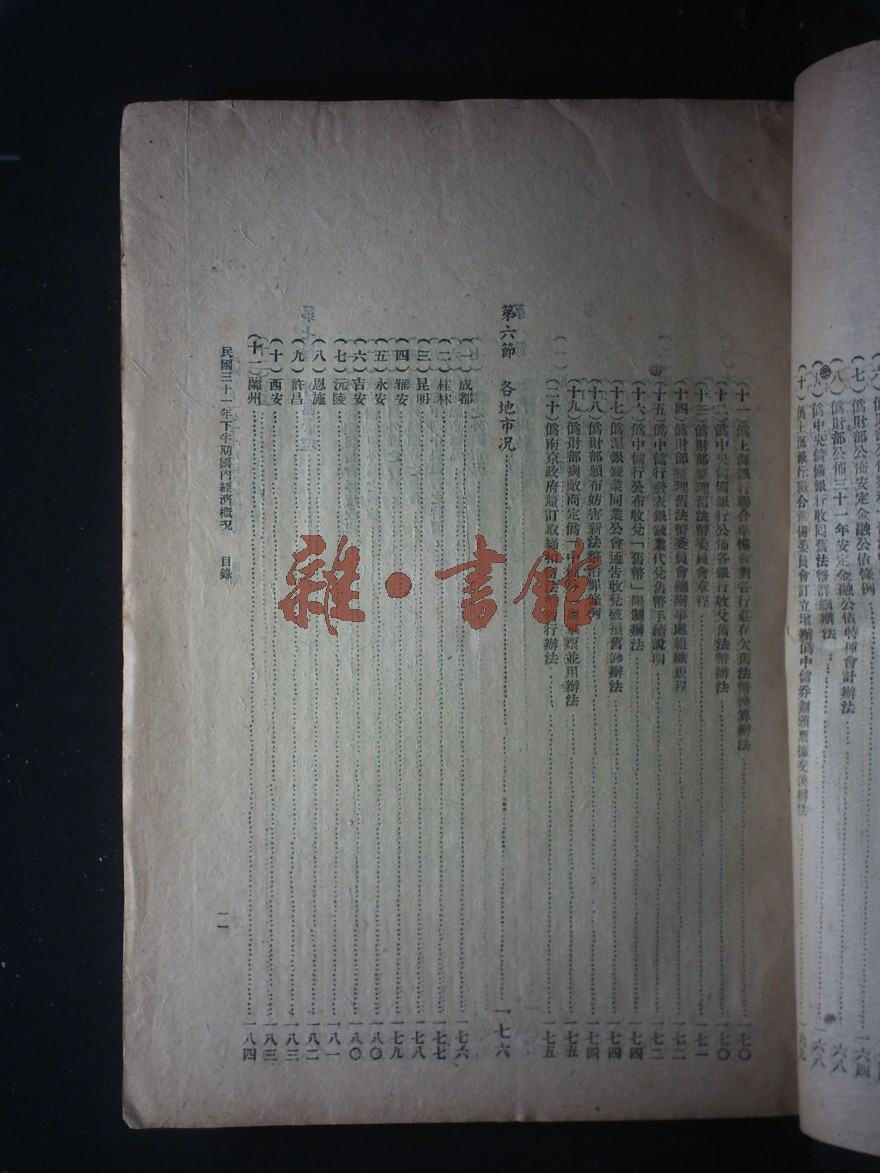 (七)僞財部公佈安定金融公債條例
(八)僞財部公佈三十一年安定金融公債特種會計辦法
(九)僞中央儲備銀行收回舊法幣
辦法
一六八
(十)僞上海銀行聯合準備委員會訂立增辦僞中儲券劃頭票據交換辦法
(十一)僞上海銀行聯合準備會劃告行莊存欠舊法幣換算辦法 一七〇
(十二)僞中央儲備銀行公佈各銀行收兌舊法幣辦法 一七〇
(十三)僞財部整理舊法幣委員會章程 一七一
(十四)僞財部整理舊法幣委員會總辦事處組織規程 一七二
(十五)僞中儲行發表銀錢業代兌舊幣手續說明 一七二
(十六)僞中儲行公布收兌「舊幣」限制辦法 一七四
(十七)僞滬銀錢業同業公會通告收兌破損舊幣辦法 一七四
(十八)僞財部頒布妨害新法幣治罪條例 一七四
(十九)僞財部與敵商定僞「中
票並用辦法 一七五
(二十)僞南京政府釐訂取締
行辦法 一七五
第六節 各地市況 一七六
(一)成都 一七六
(二)桂林 一七七
(三)昆明 一七八
(四)雅安 一七九
(五)永安 一八〇
(六)吉安 一八〇
(七)沅陵 一八一
(八)恩施 一八二
(九)許昌 一八三
(十)西安 一八三
(十一)蘭州 一八四
民國三十一年下半期國內經濟概況 目錄 一一
雜·書館